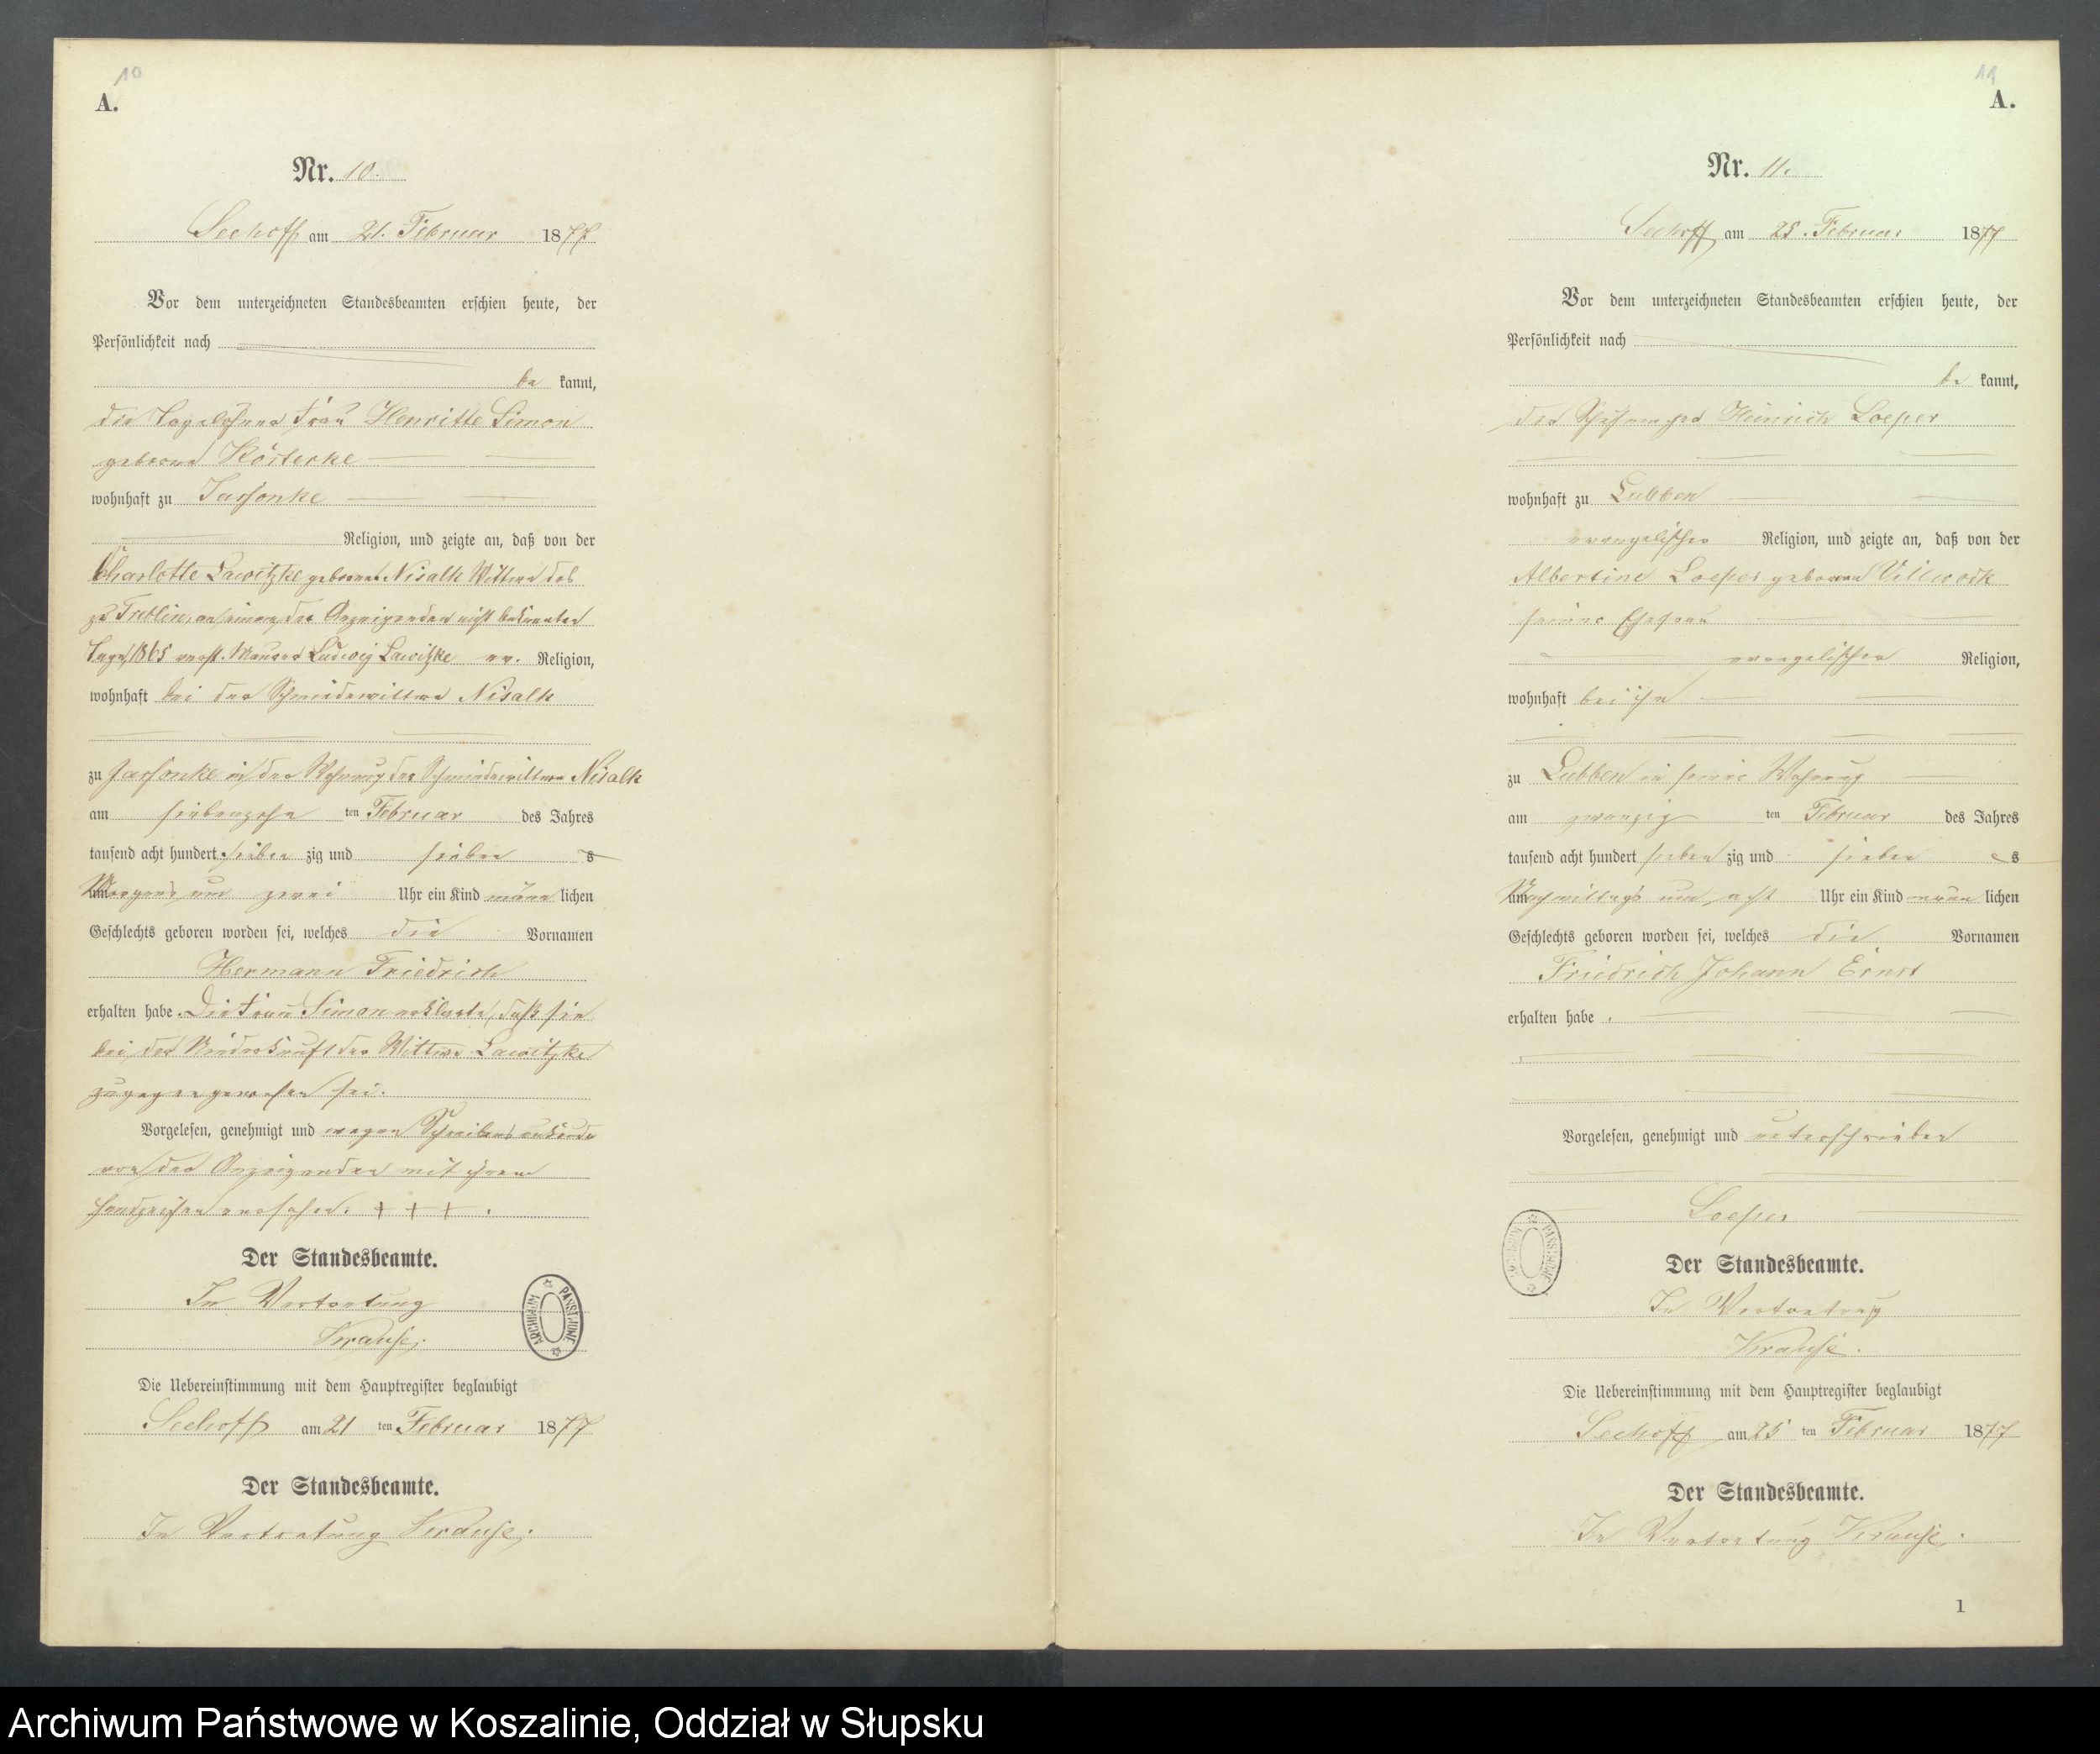 10
A.
Nr. 10.
Seehoff am 21. Februar 1877
Vor dem unterzeichneten Standesbeamten erschien heute, der
Persönlichkeit nach
be kannt,
die Tagelöhner Frau Henritte Simon
geborne Kösterke
wohnhaft zu Jassonke
Religion, und zeigte an, daß von der
Charlotte Lawitzke geborne Nisalk Wittwe des
zu Treblin, an einem, der Anzeigenden nicht bekannten
Tage, 1865 verst. Maurer Ludwig Lawitzke ev. Religion,
wohnhaft bei der Schmiedewittwe Nisalk
zu Jassonke in der Wohnung der Schmiedewittwe Nisalk
am siebenzehn ten Februar des Jahres
tausend acht hundert sieben zig und sieben s
Morgens um zwei Uhr ein Kind männ lichen
Geschlechts geboren worden sei, welches die Vornamen
Hermann Friedrich
erhalten habe. Die Frau Simon erklärte, daß sie
bei der Niederkunft der Wittwe Lawitzke
zugegen gewesen sei.
Vorgelesen, genehmigt und wegen Schreibensunkunde
von der Anzeigenden mit ihrem
Handzeichen versehen. + + + .
Der Standesbeamte.
In Vertretung
Krause.
ARCHIWUM PAŃSTWOWE
Die Uebereinstimmung mit dem Hauptregister beglaubigt
Seehoff am 21 ten Februar 1877
Der Standesbeamte.
In Vertretung Krause.
11
A.
Nr. 11.
Seehoff am 25. Februar 1877
Vor dem unterzeichneten Standesbeamten erschien heute, der
Persönlichkeit nach
be kannt,
der Heinrich Loeper
wohnhaft zu Lubben
evangelischer Religion, und zeigte an, daß von der
Albertine Loeper geborne Villwock
seiner Ehefrau
evangelischer Religion,
wohnhaft bei ihm
zu Lubben in seiner Wohnung
am zwanzig ten Februar des Jahres
tausend acht hundert sieben zig und sieben s
Nachmittags um acht Uhr ein Kind männ lichen
Geschlechts geboren worden sei, welches die Vornamen
Friedrich Johann Ernst
erhalten habe .
Vorgelesen, genehmigt und unterschrieben
Loeper
ARCHIWUM PAŃSTWOWE
Der Standesbeamte.
In Vertretung
Krause.
Die Uebereinstimmung mit dem Hauptregister beglaubigt
Seehoff am 25 ten Februar 1877
Der Standesbeamte.
In Vertretung Krause.
1
Archiwum Państwowe w Koszalinie, Oddział w Słupsku